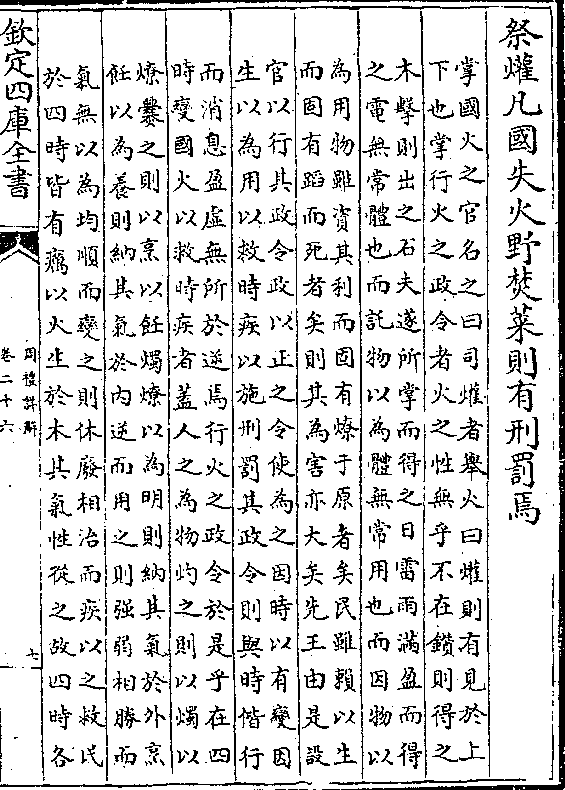 祭爟凡國失火野焚菜則有刑罰焉
掌國火之官名之曰司爟者舉火曰爟則有見於上
下也掌行火之政令者火之性無乎不在鑽則得之
木擊則出之石夫遂所掌而得之日雷雨滿盈而得
之電無常體也而託物以為體無常用也而因物以
為用物雖資其利而固有燎于原者矣民雖賴以生
而固有蹈而死者矣則其為害亦大矣先王由是設
官以行其政令政以正之令使為之因時以有變因
生以為用以救時疾以施刑罰其政令則與時偕行
而消息盈虛無所於逆焉行火之政令於是乎在四
時變國火以救時疾者蓋人之為物灼之則以燭以
燎爨之則以烹以飪燭燎以為明則納其氣於外烹
飪以為養則納其氣於內逆而用之則强弱相勝而
氣無以為均順而變之則休廢相治而疾以之救民
於四時皆有癘以火生於木其氣性從之故四時各
欽定四庫全書
周禮詳解
卷二十六
七